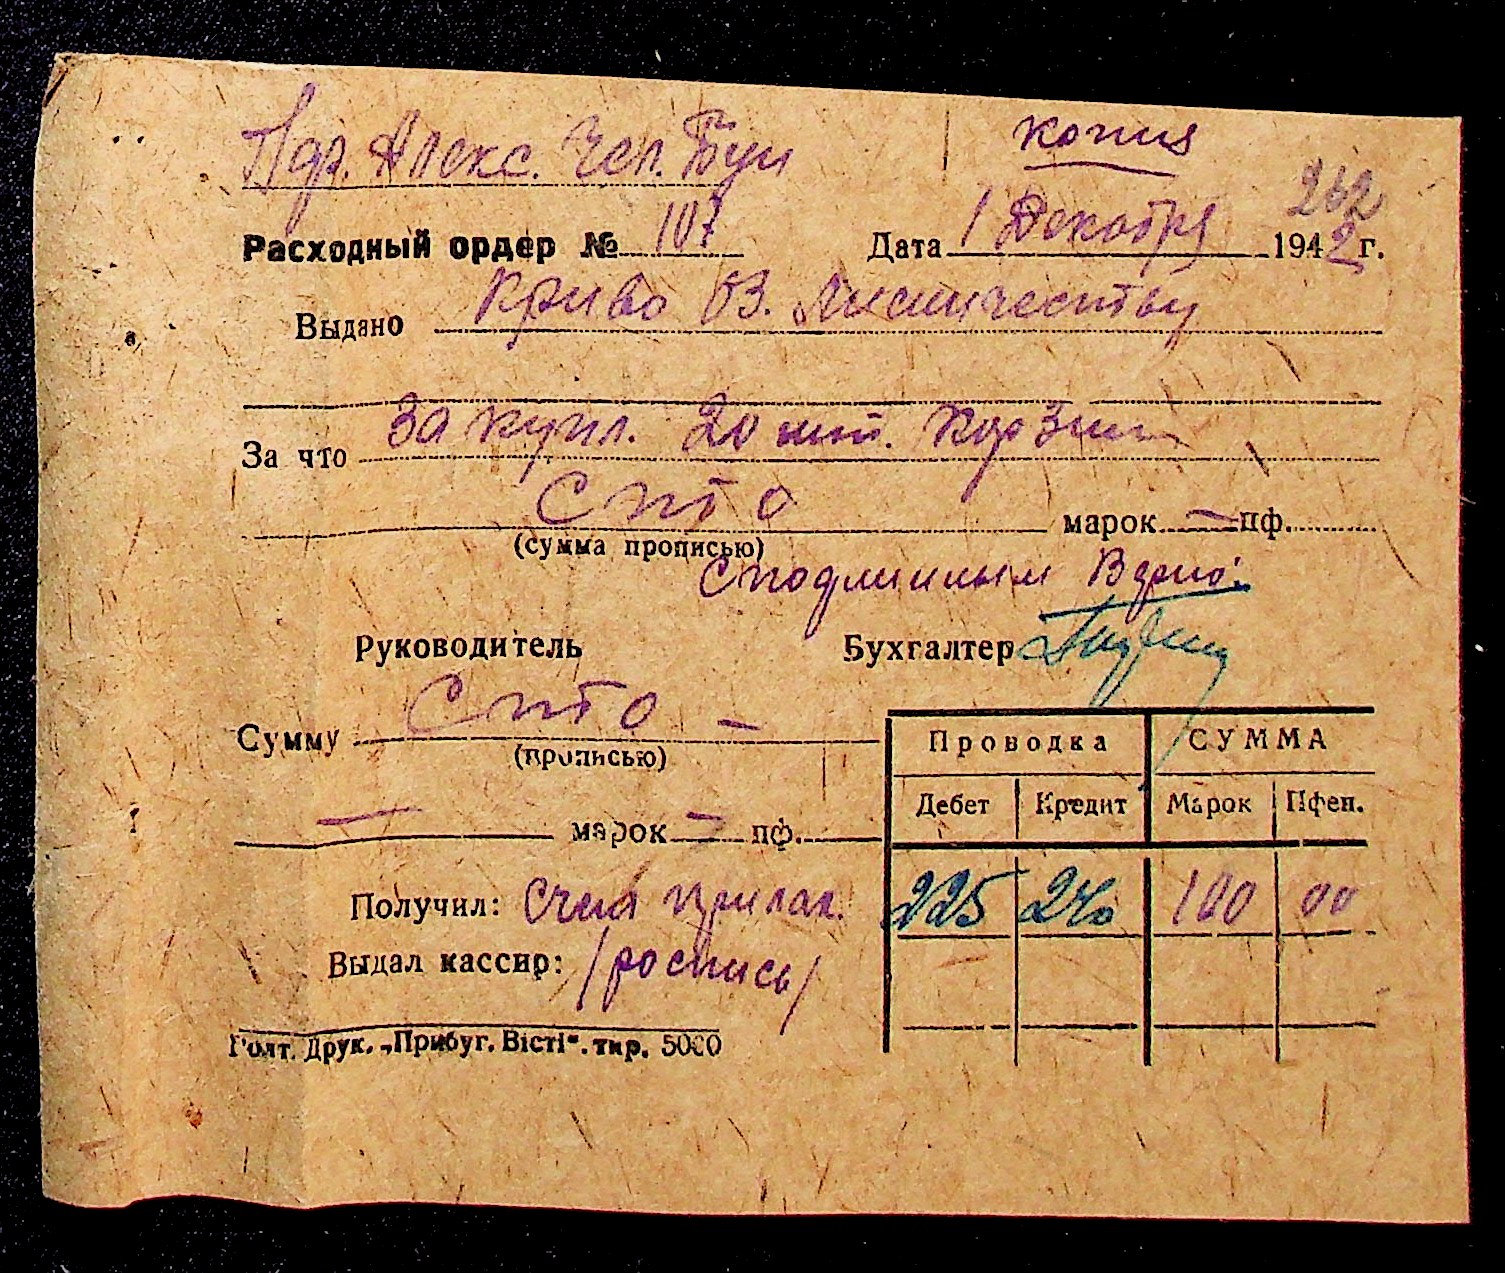 копия
Расходный ордер № 107 Дата 1 Декабря 1942 г.
262
Выдано Криво Оз. Лисничеству
За что За купл. 20 шт. Корзин
Сто марок — пф.
(сумма прописью)
С подлинным Верно:
Руководитель Бухгалтер
Сумму Сто —
(прописью)
— марок — пф.
Проводка СУММА
Дебет Кредит Марок Пфен.
225 240 100 00
Получил: Счет прилаг.
Выдал кассир: /роспись/
Голт. Друк. „Прибуг. Вісті". тир. 5000